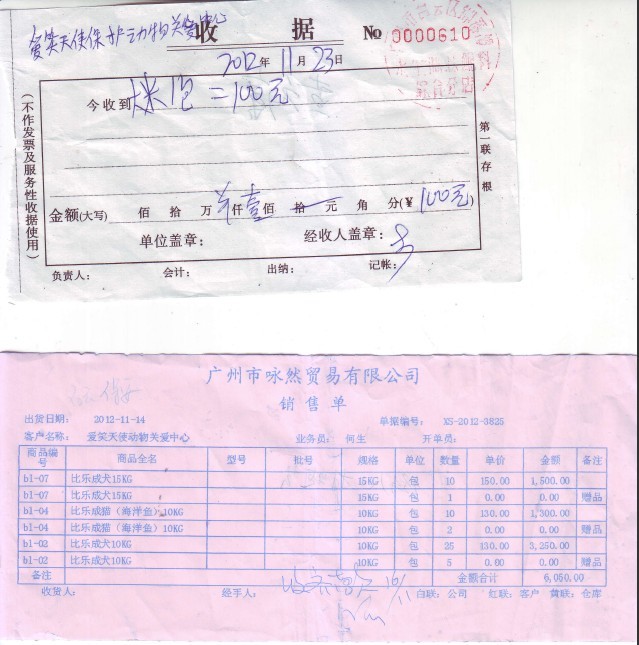 爱笑天使保护动物关爱中心
收 据 No 0000610
2012年 11月 23日
今收到 大米 包 = 100元
金额(大写) 佰 拾 万 仟 壹 佰 拾 元 角 分(¥ 100元)
单位盖章: 经收人盖章:
负责人: 会计: 出纳: 记帐:
(不作发票及服务性收据使用)
第一联存根
广州市咏然贸易有限公司
销售单
出货日期: 2012-11-14 单据编号: XS-2012-3825
客户名称: 爱笑天使动物关爱中心 业务员: 何生 开单员:
商品编号 商品全名 型号 批号 规格 单位 数量 单价 金额 备注
b1-07 比乐成犬15KG 15KG 包 10 150.00 1,500.00
b1-07 比乐成犬15KG 15KG 包 1 0.00 0.00 赠品
b1-04 比乐成猫（海洋鱼）10KG 10KG 包 10 130.00 1,300.00
b1-04 比乐成猫（海洋鱼）10KG 10KG 包 2 0.00 0.00 赠品
b1-02 比乐成犬10KG 10KG 包 25 130.00 3,250.00
b1-02 比乐成犬10KG 10KG 包 5 0.00 0.00 赠品
备注 金额合计 6,050.00
收货人: 经手人: 白联: 公司 红联: 客户 黄联: 仓库